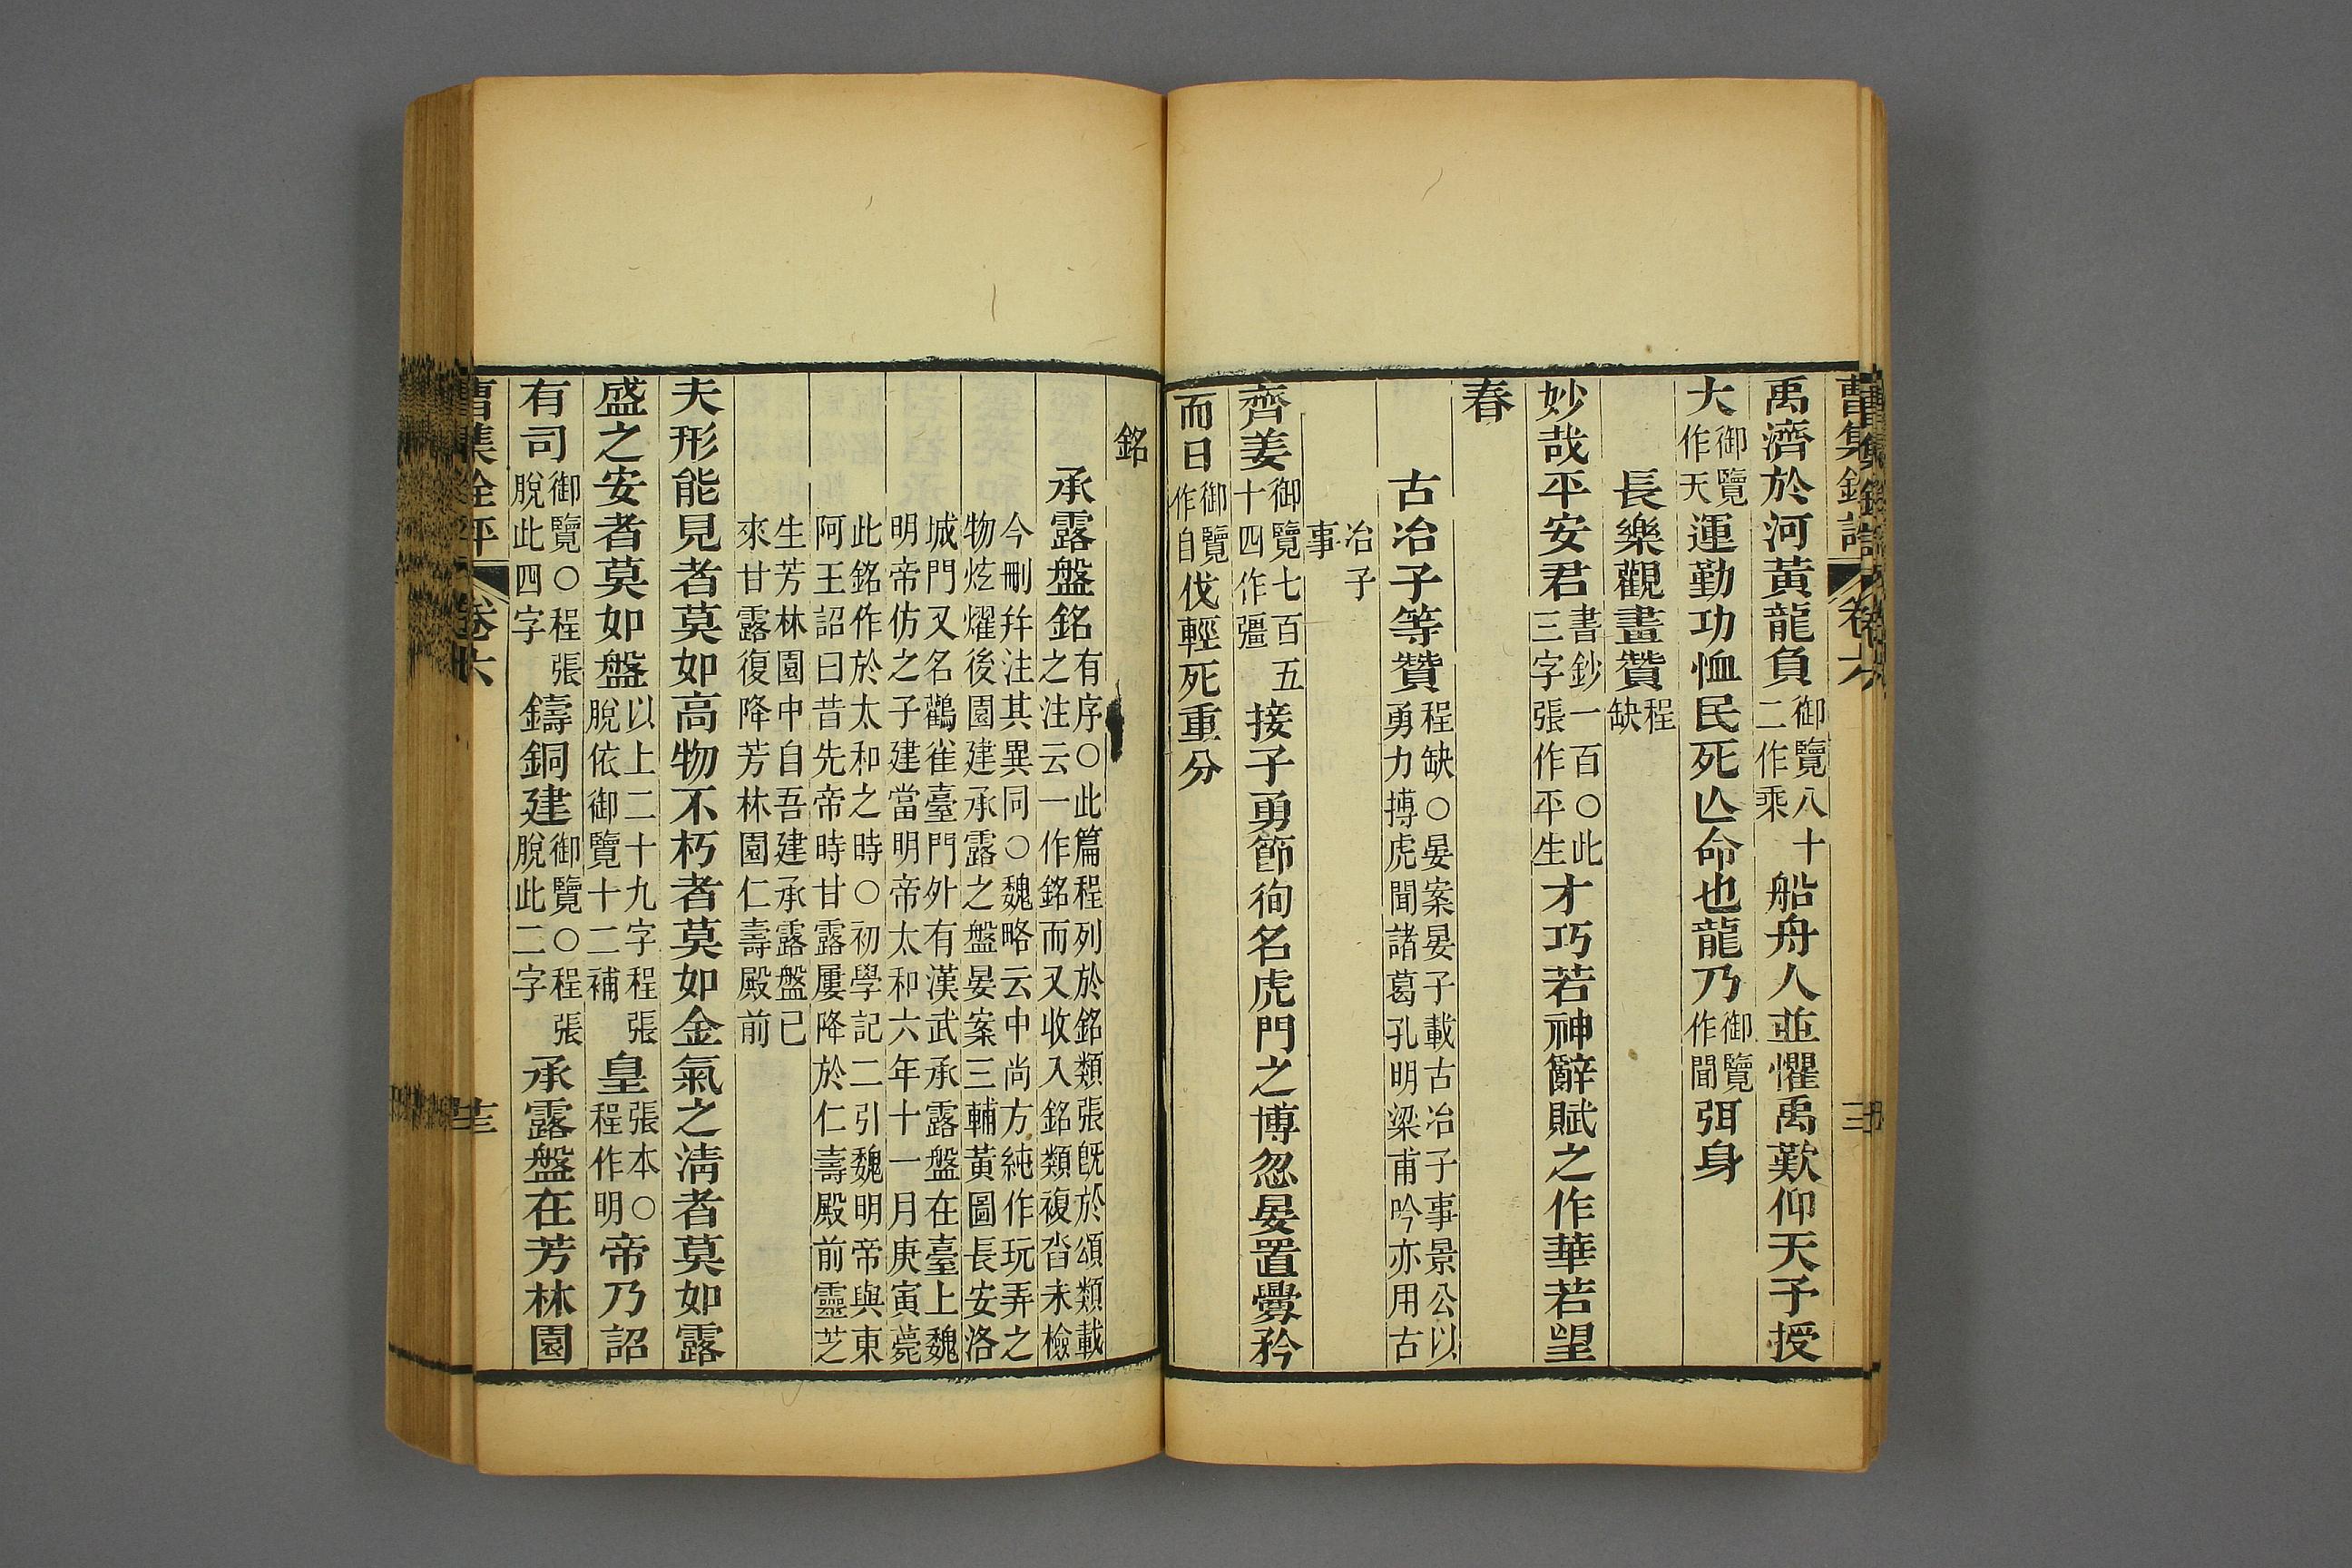 曹集銓評 卷六
禹濟於河黃龍負御覽八十二作乘船舟人並懼禹歎仰天予授
大御覽作天運勤功恤民死亾命也龍乃御覽作聞弭身
長樂觀畫贊程缺
妙哉平安君書鈔一百○此三字張作平生才巧若神辭賦之作華若望
春
古冶子等贊程缺○晏案晏子載古冶子事景公以勇力搏虎聞諸葛孔明梁甫吟亦用古
冶子事
齊姜御覽七百五十四作彊接子勇節徇名虎門之博忽晏置釁矜
而曰御覽作自伐輕死重分
銘
承露盤銘有序○此篇程列於銘類張旣於頌類載之注云一作銘而又收入銘類複沓未檢
今刪幷注其異同○魏略云中尚方純作玩弄之物炫燿後園建承露之盤晏案三輔黃圖長安洛
城門又名鸛雀臺門外有漢武承露盤在臺上魏明帝仿之子建當明帝太和六年十一月庚寅薨
此銘作於太和之時○初學記二引魏明帝與東阿王詔曰昔先帝時甘露屢降於仁壽殿前靈芝
生芳林園中自吾建承露盤已來甘露復降芳林園仁壽殿前
夫形能見者莫如高物不朽者莫如金氣之淸者莫如露
盛之安者莫如盤以上二十九字程張脫依御覽十二補皇張本○程作明帝乃詔
有司御覽○程張脫此四字鑄銅建御覽○程張脫此二字承露盤在芳林園
曹集銓評 卷六